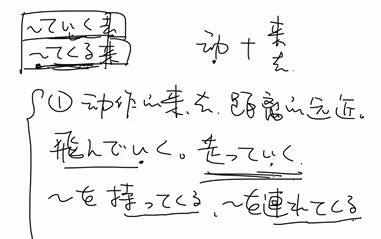 ~ていく去
~てくる来
动 + 来
去
① 动作的来、去. 距离的远近。
飛んでいく。走っていく
~を持ってくる、~を連れてくる